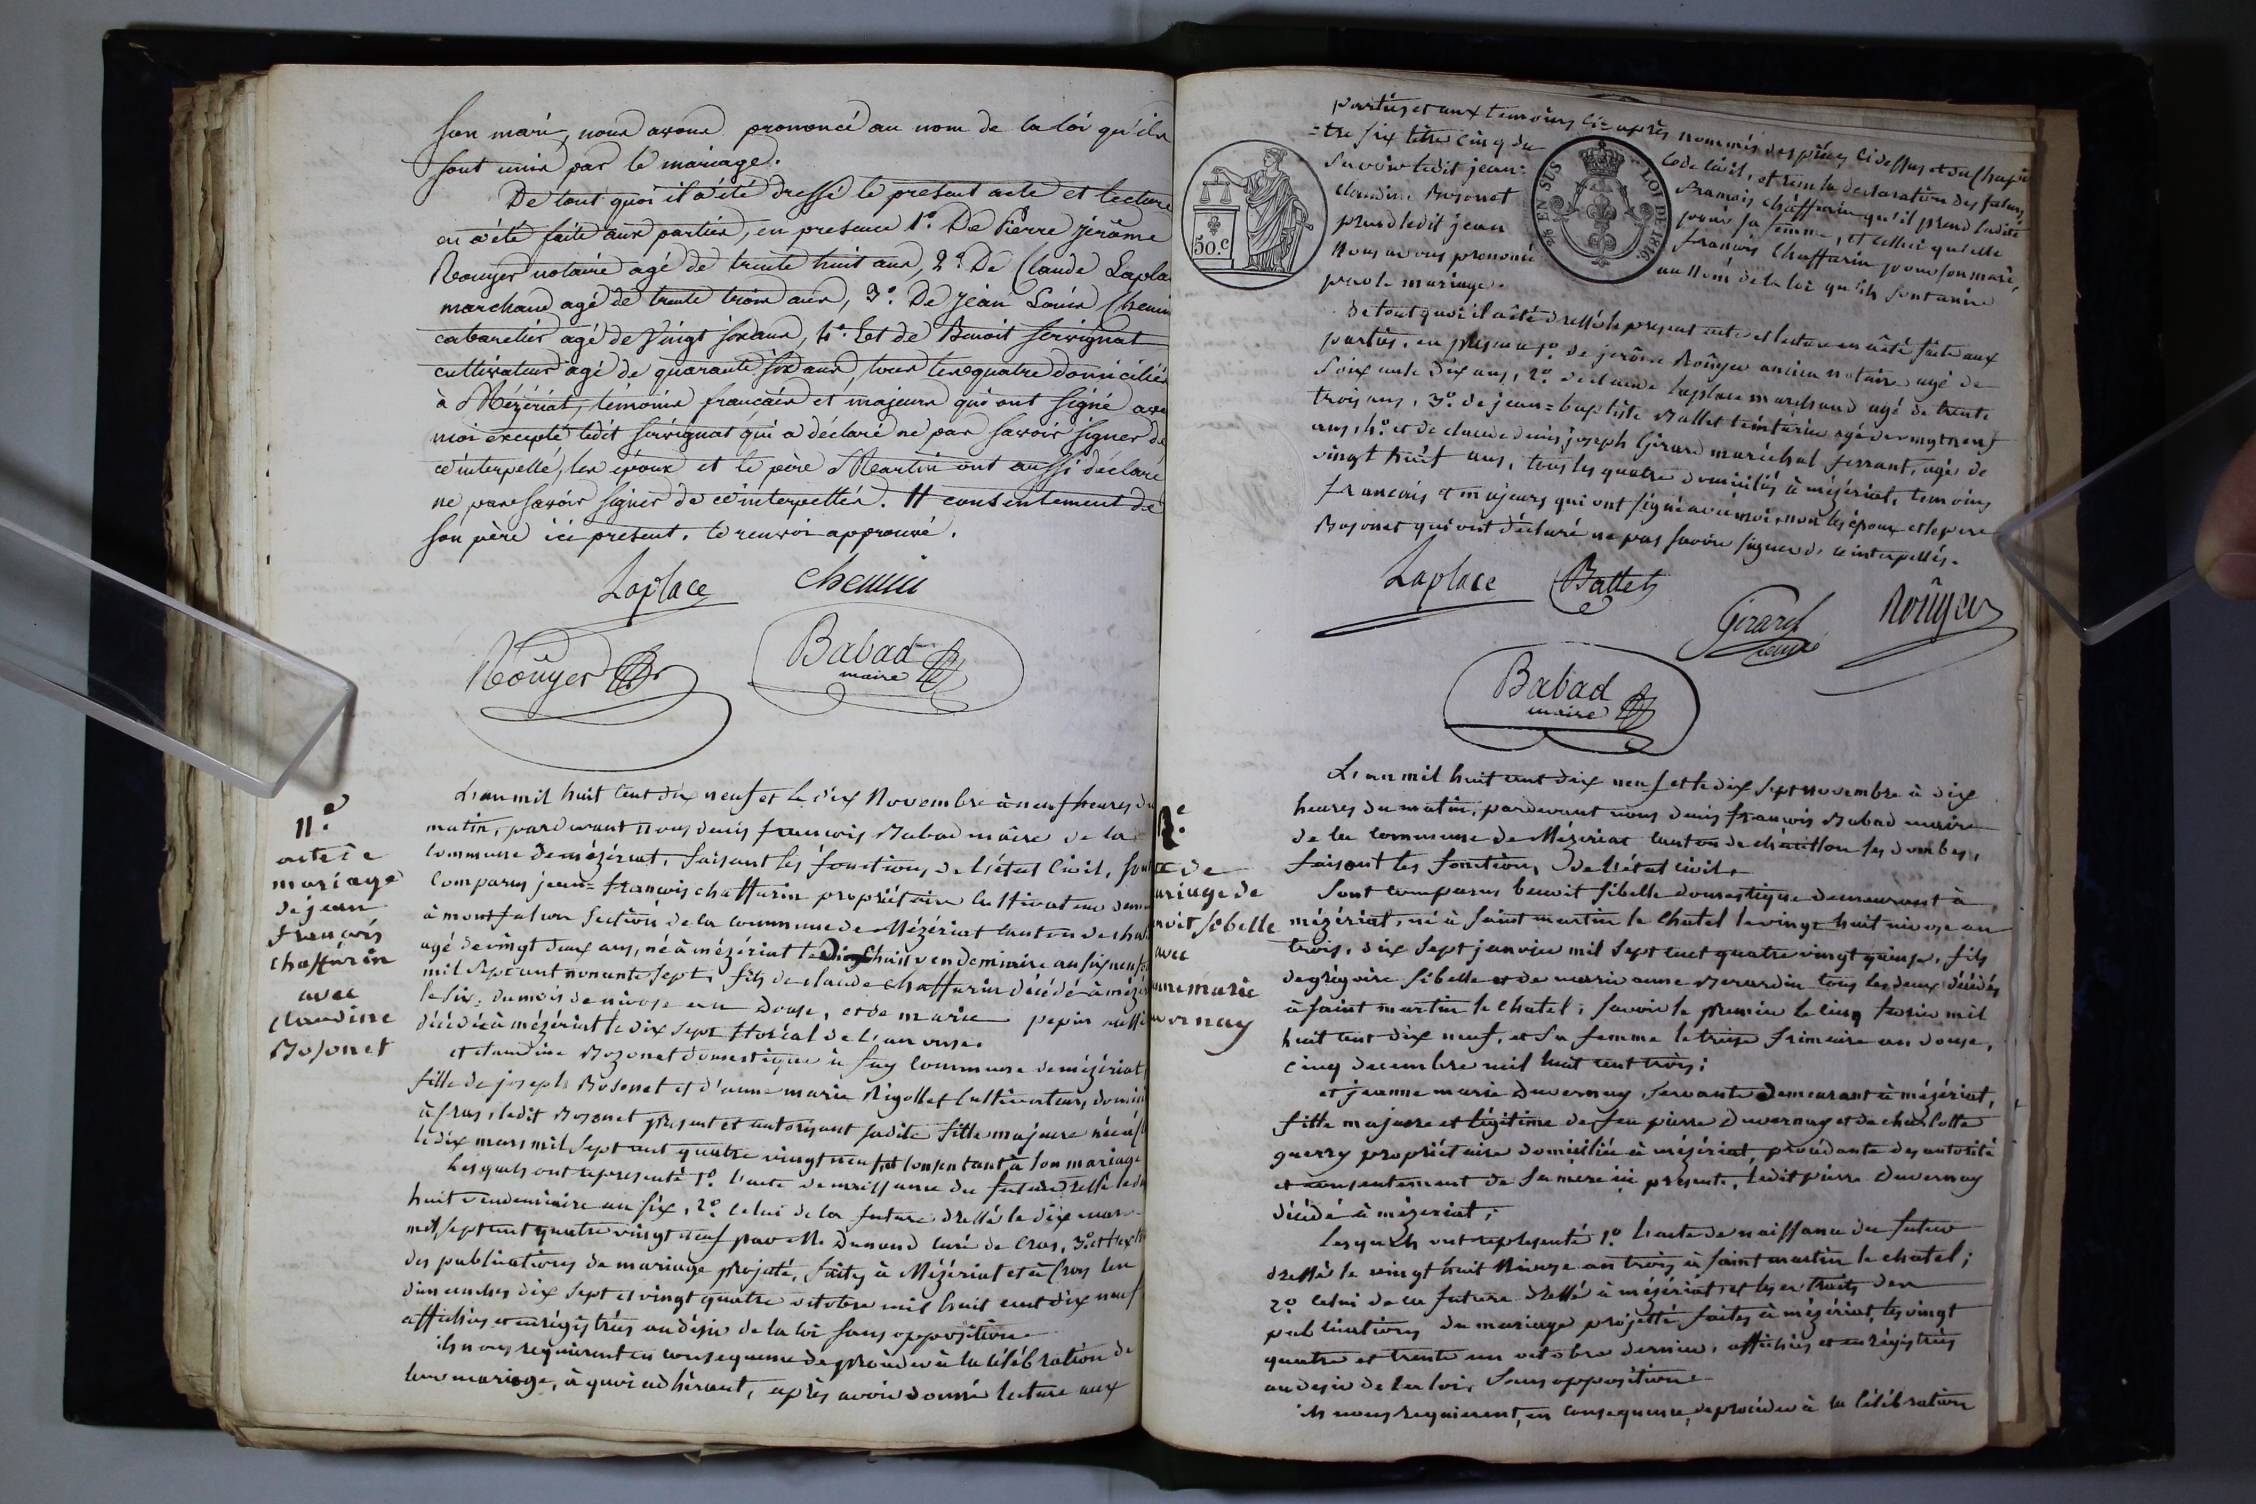 son mari, nous avons prononcé au nom de la loi qu'ils
sont unis par le mariage.
De tout quoi il a été dressé le present acte et lecture
en a été faite aux parties, en presence 1.° De Pierre jérôme
Roüyer notaire agé de trente huit ans, 2.° De Claude Lapla
marchand agé de trente trois ans, 3.° De jean Louis Chemin
cabaretier agé de vingt six ans, 4.° Et de Benoit servignat
cultivateur agé de quarante six ans, tous les quatre domiciliés
à Mézériat, témoins francais et majeurs qui ont signé avec
moi excepté ledit servignat qui a déclaré ne pas savoir signer de
ce interpellé, les époux et le père Martin ont aussi déclaré
ne pas savoir signer de ce interpellés. # consentement de
son père ici present. le renvoi approuvé.
Laplace chemin
Roüyer Babad
maire
11.e
acte de
mariage
de jean
francois
chaffurin
avec
claudine
Bozonet
L'an mil huit cent dix neuf et le dix Novembre à neuf heures du
matin, pardevant nous denis francois Babad maire de la
commune de mézériat, faisant les fonctions de l'état civil, sont
comparus jean=francois chaffurin propriétaire cultivateur dem
à montfalcon section de la commune de Mézériat canton de chat
agé de vingt deux ans, né à mézériat le dix huit vendemiaire an six
mil sept cent nonante sept, fils de claude chaffurin décédé à mézé
le six du mois de nivose an douse, et de marie pepin aussi
décédée à mézériat le dix sept floréal de l'an onse.
et claudine Bozonet domestique à fay commune de mézériat
fille de joseph Bozonet et d'anne marie Rigollet cultivateurs domici
à cras, ledit Bozonet present et autorisant sadite fille majeure née à
le dix mars mil sept cent quatre vingt neuf et consentant à son mariage
Lesquels ont representé 1.° l'acte de naissance du futur dressé le dix
huit vendemiaire an six, 2.° celui de la future dressé le dix mars
mil sept cent quatre vingt neuf par M. Dunand curé de Cras, 3.° et
des publications de mariage projeté, faites à Mézériat et à Cras les
dimanches dix sept et vingt quatre octobre mil huit cent dix neuf
affichées et enrégistrées au désir de la loi sans opposition
ils nous requierent en consequence de procéder à la célébration de
leur mariage, à quoi adhérant, après avoir donné lecture aux
parties et aux temoins ci-après nommés des pièces ci dessus et du chapi
=tre six titre cinq du code civil, et reçu la declaration des futurs
savoir ledit jean= francois chaffurin qu'il prend ladite
claudine Bozonet pour sa femme, et celle ci qu'elle
prend ledit jean francois chaffurin pour son mari,
Nous avons prononcé au nom de la loi qu'ils sont unis
par le mariage.
50.c
EN SUS
LOI DE 1816.
De tout quoi il a été dressé le present acte et lecture en a été faite aux
parties, en presence 1.° de jerôme Roüyer ancien notaire agé de
soixante dix ans, 2.° de claude Laplace marchand agé de trente
trois ans, 3.° de jean=baptiste Ballet teinturier agé de vingt neuf
ans, 4.° et de claude denis joseph Girard maréchal ferrant, agé de
vingt huit ans, tous les quatre domiciliés à mézériat, temoins
francais et majeurs qui ont signé avec moi, non les époux et le pere
Bozonet qui ont déclaré ne pas savoir signer de ce interpellés.
Laplace Ballet
Girard Roüyer
Babad
maire
te de
ariage de
noit sibelle
avec
anne marie
uvernay
L'an mil huit cent dix neuf et le dix sept novembre à dix
heures du matin, pardevant nous denis francois Babad maire
de la commune de Mézériat canton de châtillon les dombes,
faisant les fonctions de l'état civil.
Sont comparus benoit sibelle domestique demeurant à
mézériat, né à saint martin le chatel le vingt huit nivose an
trois, dix sept janvier mil sept cent quatre vingt quinze, fils
de grégoire sibelle et de marie anne Morardin tous les deux décédés
à saint martin le chatel; savoir le premier le cinq fevrier mil
huit cent dix neuf, et sa femme le treize frimaire an douse,
cinq decembre mil huit cent trois;
et jeanne marie Duvernay servante demeurant à mézériat,
fille majeure et légitime de feu pierre Duvernay et de charlotte
guerry propriétaire domiciliée à mézériat, procédante des autorité
et consentement de sa mere ici presente, ledit pierre Duvernay
décédé à mézériat;
Lesquels ont representé 1.° l'acte de naissance du futur
dressé le vingt huit Nivose an trois à saint martin le chatel;
2.° celui de la future dressé à mézériat, et les extraits des
publications du mariage projetté, faites à mézériat, les vingt
quatre et trente un octobre dernier, affichées et enrégistrées
au desir de la loi, sans opposition
ils nous requierent, en consequence, de procéder à la célébration